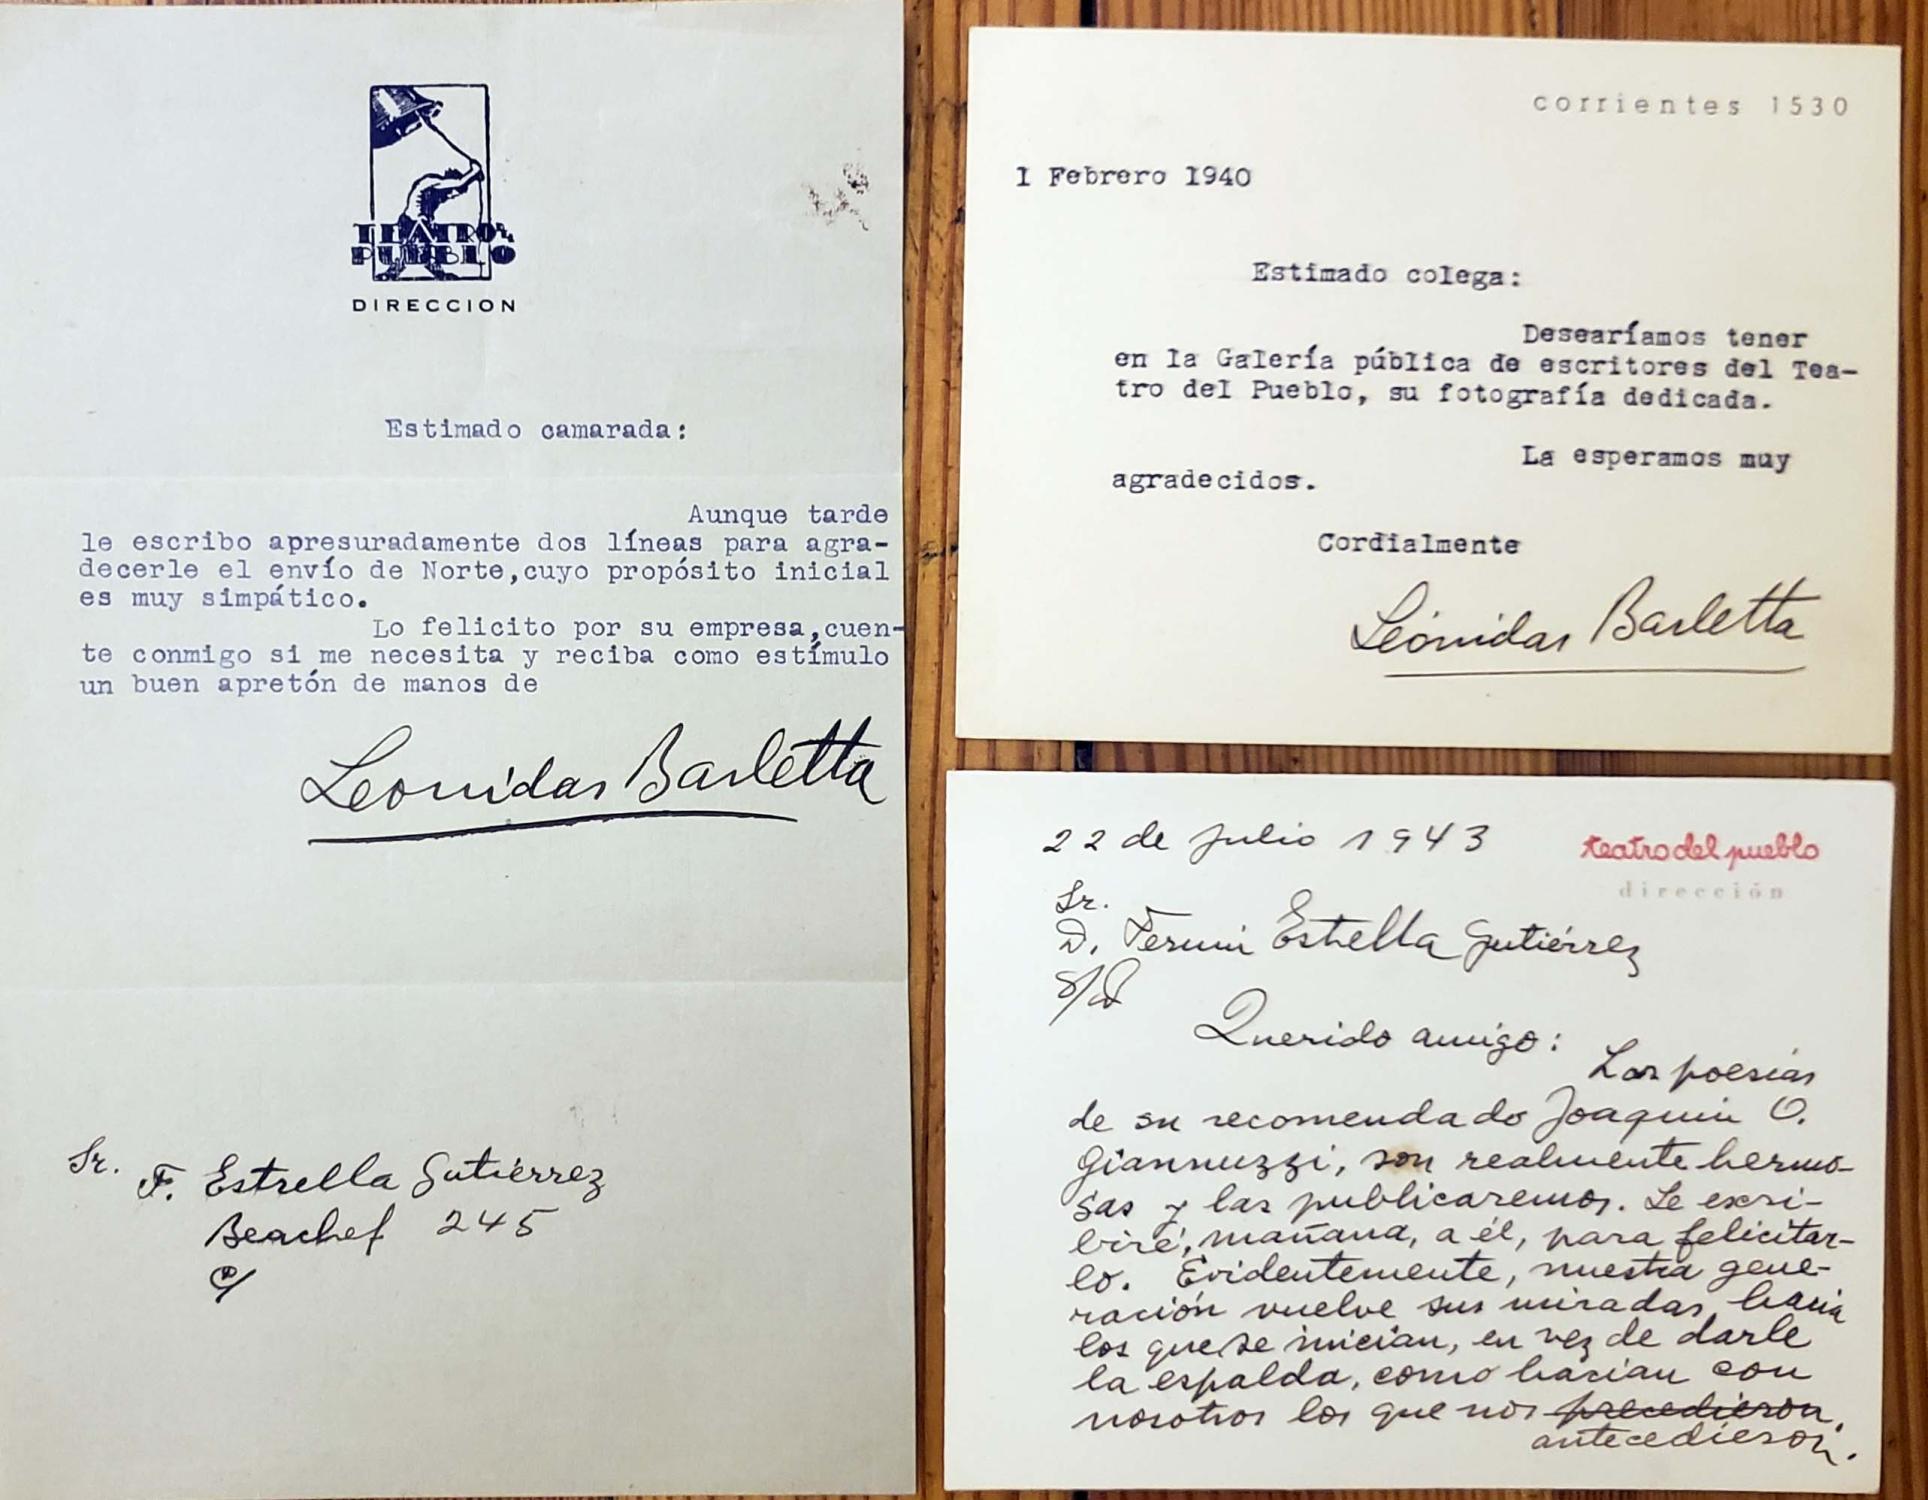 TEATRO DEL
PUEBLO
DIRECCION
Estimado camarada:
Aunque tarde
le escribo apresuradamente dos líneas para agra-
decerle el envío de Norte,cuyo propósito inicial
es muy simpático.
Lo felicito por su empresa,cuen-
te conmigo si me necesita y reciba como estímulo
un buen apretón de manos de
Leonidas Barletta
Sr. F. Estrella Gutiérrez
Beachef 245
corrientes 1530
1 Febrero 1940
Estimado colega:
Desearíamos tener
en la Galería pública de escritores del Tea-
tro del Pueblo, su fotografía dedicada.
La esperamos muy
agradecidos.
Cordialmente
Leónidas Barletta
22 de julio 1943
teatro del pueblo
dirección
Sr.
D. Fermín Estrella Gutiérrez
S/D
Querido amigo:
Las poesías
de su recomendado Joaquin O.
Giannuzzi, son realmente hermo-
sas y las publicaremos. Le escri-
biré, mañana, a él, para felicitar-
lo. Evidentemente, nuestra gene-
ración vuelve sus miradas hacia
los que se inician, en vez de darle
la espalda, como hacían con
nosotros los que nos precedieron,
antecedieron.